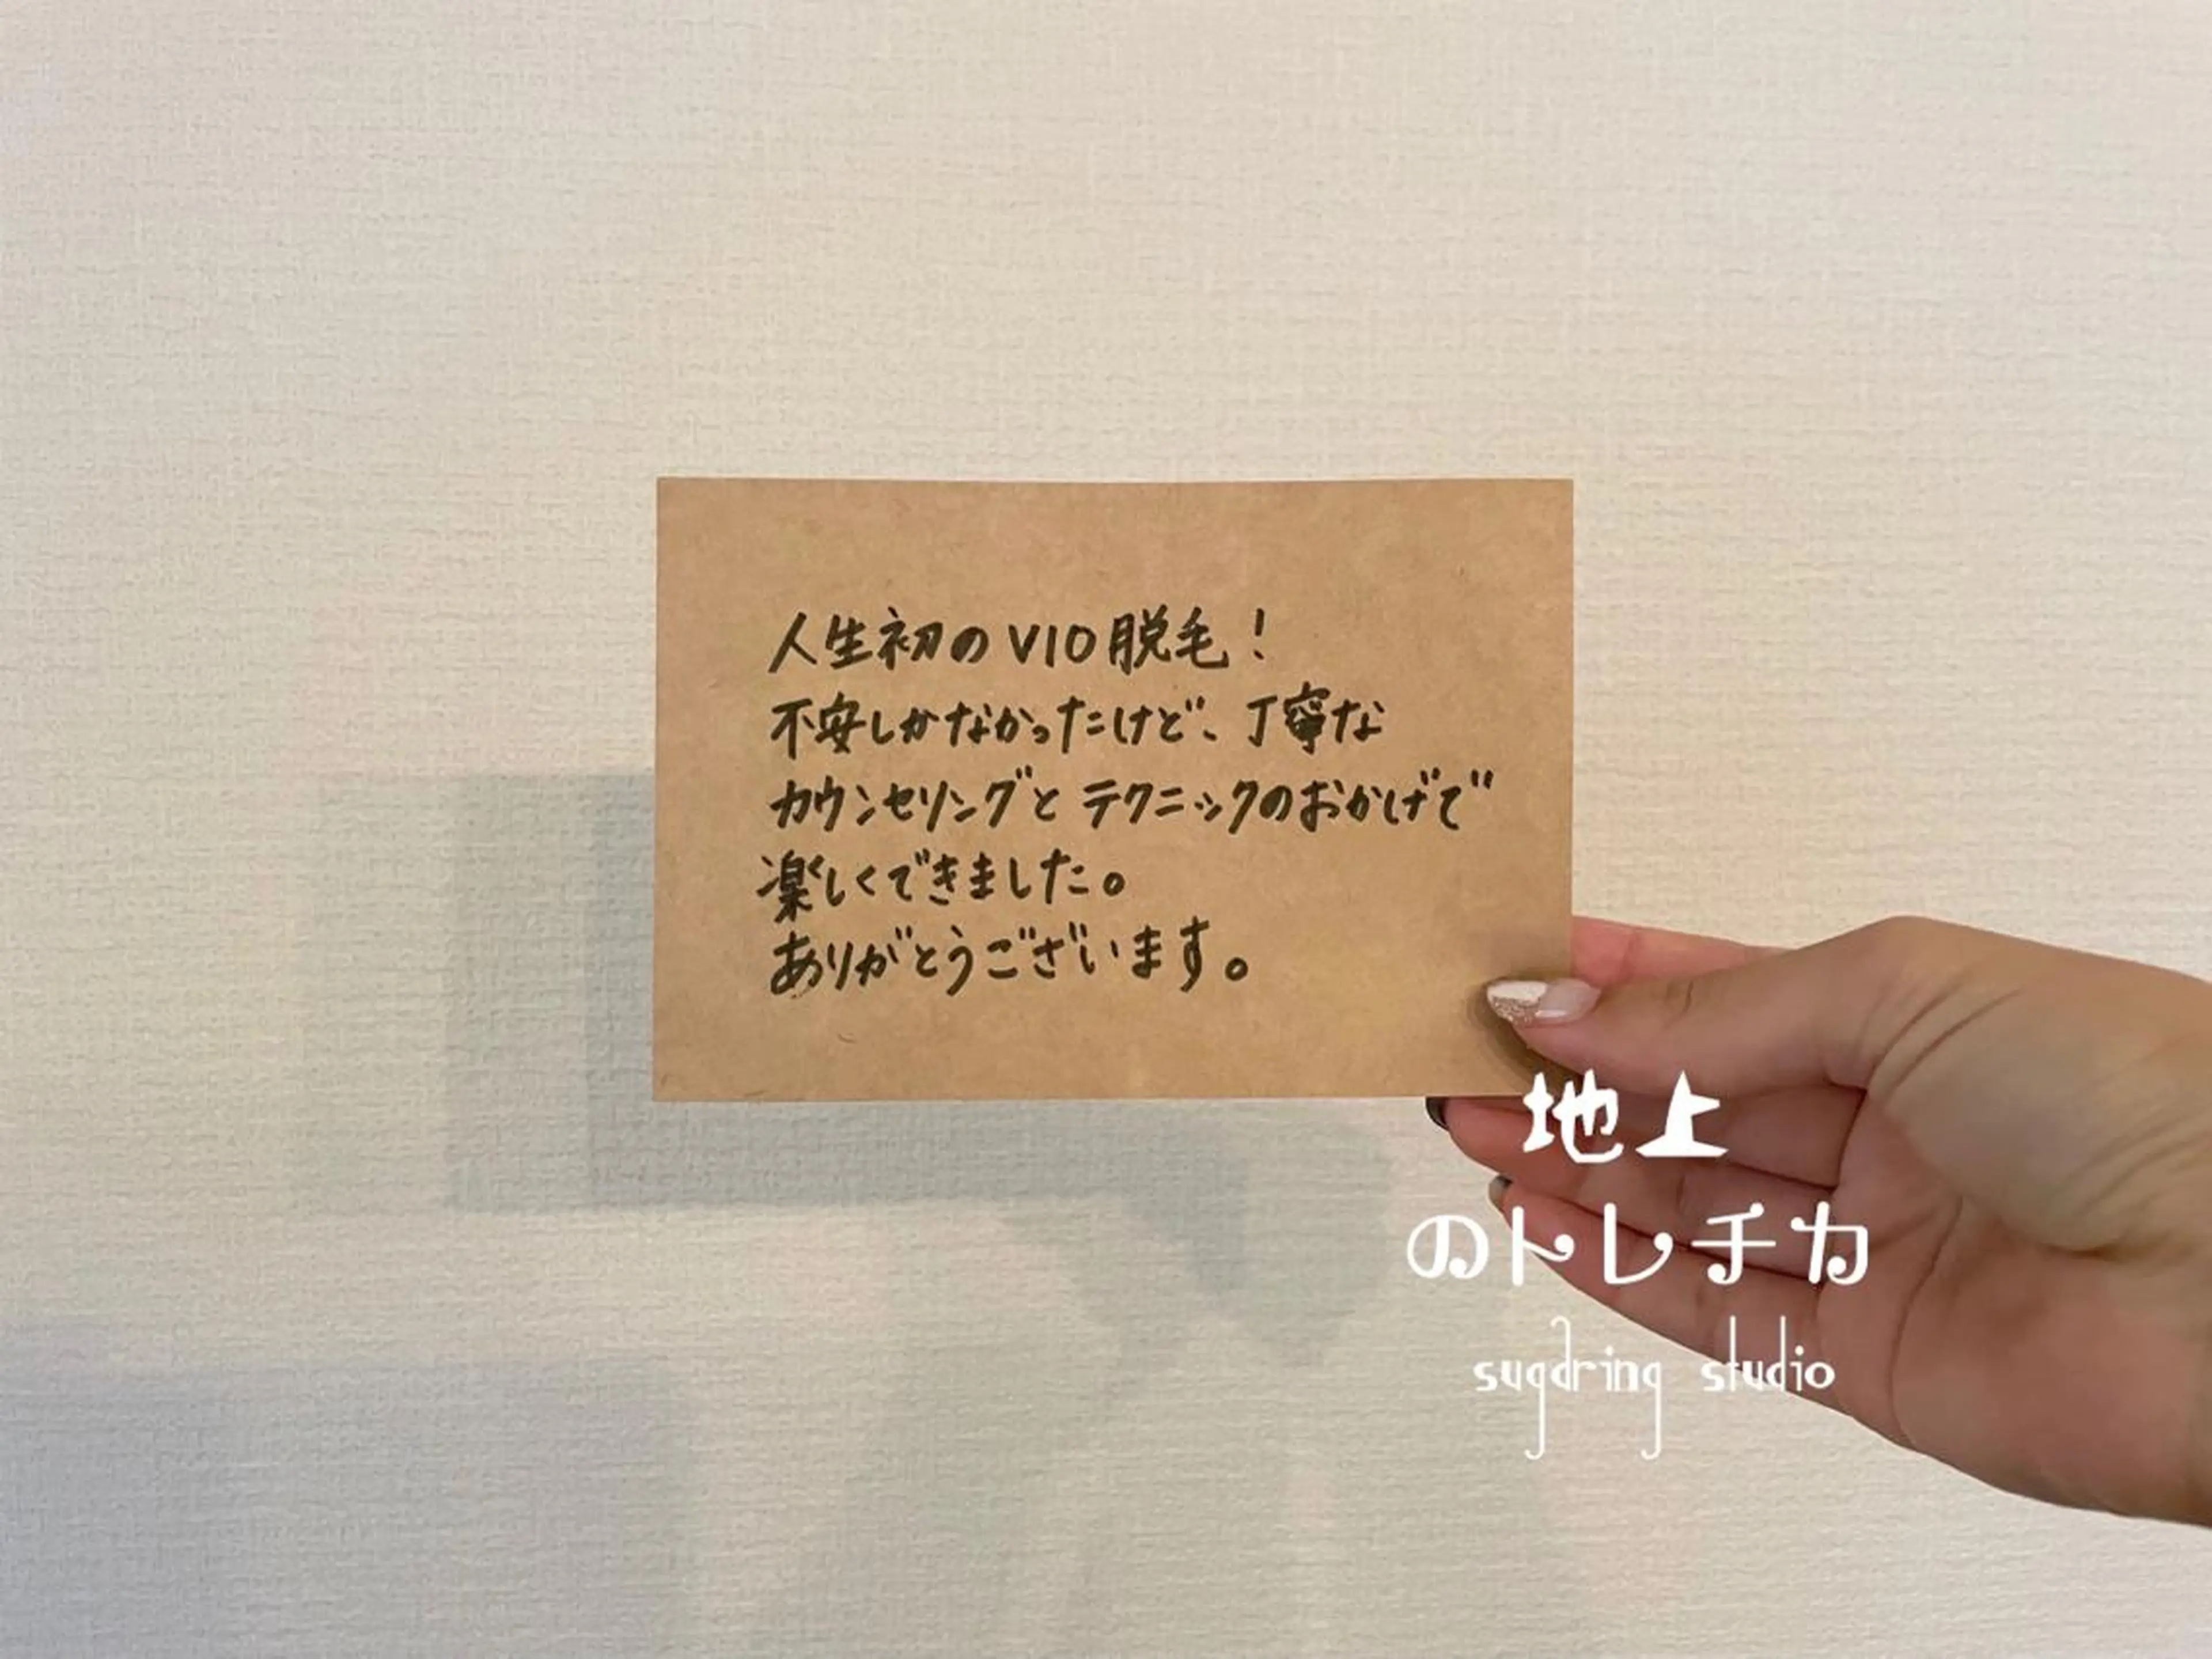 人生初のVIO脱毛！
不安しかなかったけど、丁寧な
カウンセリングとテクニックのおかげで
楽しくできました。
ありがとうございます。
地上
のトレチカ
sugaring studio